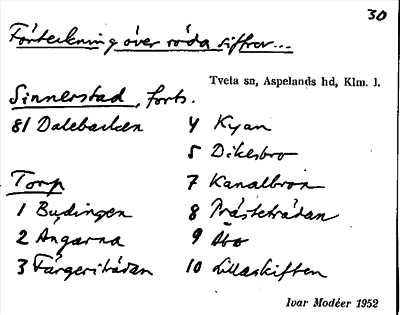 30
Förteckning över röda siffror...
Tveta sn, Aspelands hd, Klm. l.
Sinnerstad, forts.
81 Dalebacken
Torp
1 Bydingen
2 Ängarna
3 Färgeriträdan
4 Kyan
5 Dikesbro
7 Kanalbron
8 Prästeträdan
9 Åbo
10 Lillaskiften
Ivar Modéer 1952